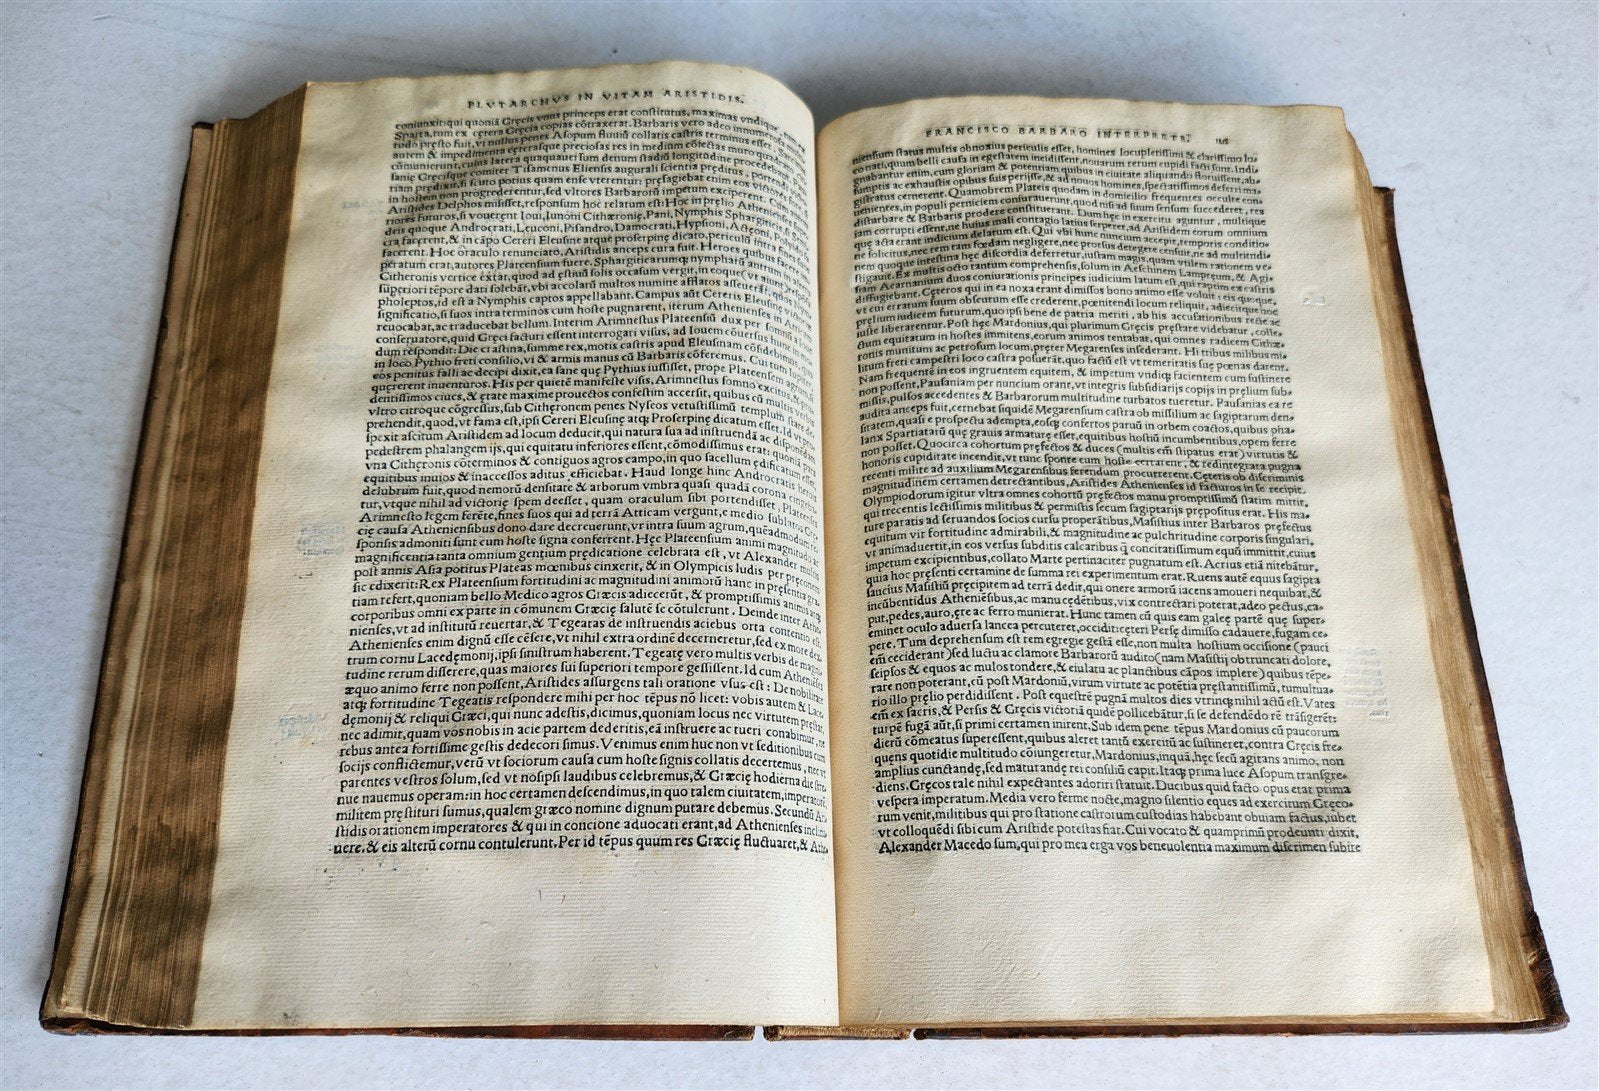 PLVTARCHVS IN VITAM ARISTIDIS.
coniunxit: qui quoniā Gręcis vnus princeps erat constitutus, maximas vndique,
Sparta, tum ex cętera Gręcia copias cōtraxerat. Barbaris vero adeo innumerosa
tudo pręsto fuit, vt nullus penes Asopum fluuiū collatis castris terminus esset.
autem & impedimenta cęterasque preciosas res in medium cōiectas muro quadrato
cōmunierunt, cuius latera quaquauersum denum stadiū longitudine procedebant.
sanię Gręcisque comiter Tisamenus Eliensis augurali scientia pręditus, portendi
riam prędixit, si scuto potius quam ense vterentur: pręsagiebat enim eos victores
in hostem non progrederentur, sed vltores Barbarorū impetum exciperent. Cum
Aristides Delphos misisset, responsum hoc relatum est: Hoc in pręlio Athenienses
riores futuros, si vouerent Ioui, Iunoni Cithæronię, Pani, Nymphis Sphargiticis
deis quoque Androcrati, Leuconi, Pisandro, Damocrati, Hypsioni, Actęoni, Polyido
cra facerent, & in cāpo Cereri Eleusinę atque proserpinę dicato, periculū intra
facerent. Hoc oraculo renunciato, Aristidis anceps cura fuit. Heroes quibus
peratum erat, autores Plateensium fuere. Sphargiticarumq; nympharū antrum in
Citheronis vertice extat, quod ad estiuū solis occasum vergit, in eoque (vt aiunt)
superiori tēpore dari solebāt, vbi accolarū multos numine afflatos
pholeptos, id est a Nymphis captos appellabant. Campus aūt Cereris Eleusinę
significatio, si suos intra terminos cum hoste pugnarent, iterum Athenienses in
reuocabat, ac traducebat bellum. Interim Arimnestus Plateensiū dux per somnū a Ioue
conseruatore, quid Gręci facturi essent interrogari visus, ad Iouem cōuersus
dum respondit: Die crastina, summe rex, motis castris apud Eleusinam
in loco Pythio freti consilio, vi & armis manus cū Barbaris cōferemus. Cui tum Iupiter
eos penitus falli ac decipi dixit, ea sane quę Pythius iussisset, prope Plateensem agrum
quęrerent inuenturos. His per quietē manifeste visis, Arimnestus somno excitus,
dentissimos ciues, & ętate maxime prouectos confestim accersit, quibus cū multis
vltro citroque cōgressus, sub Cithęronem penes Nyseos vetustissimū templum
prehendit, quod, vt fama est, ipsi Cereri Eleusinę atq; Proserpinę dicatum esset. Id vt
spexit ascitum Aristidem ad locum deducit, qui natura sua ad instruendā ac
pedestrem phalangem ijs, qui equitatu inferiores essent, cōmodissimus erat: quoniā
vna Cithęronis cōterminos & contiguos agros campo, in quo sacellum ędificatum
equitibus inuios & inaccessos aditus efficiebat. Haud longe hinc Androcratis
delubrum fuit, quod nemorū densitate & arborum vmbra quasi quadā corona
tur, vtque nihil ad victorię spem deesset, quam oraculum sibi portendisset, Plateenses
Arimnesto legem ferēte, fines suos qui ad terrā Atticam vergunt, e medio
cię causa Atheniensibus dono dare decreuerunt, vt intra suum agrum, quēadmodum
sponsis admoniti sunt cum hoste signa conferrent. Hęc Plateensium animi magnitudo ac
magnificentia tanta omnium gentium prędicatione celebrata est, vt Alexander multis
post annis Asia potitus Plateas mœnibus cinxerit, & in Olympicis ludis per pręconem
sic edixerit: Rex Plateensium fortitudini ac magnitudini animorū hanc in pręsentia gra
tiam refert, quoniam bello Medico agros Gręcis adiecerūt, & promptissimis animis atq;
corporibus omni ex parte in cōmunem Gręcię salutē se cōtulerunt. Deinde inter Athe
nienses, vt ad institutū reuertar, & Tegeatas de instruendis aciebus orta contentio est.
Athenienses enim dignū esse cēsere, vt nihil extra ordinē decerneretur, sed ex more
trum cornu Lacedęmonij, ipsi sinistrum haberent. Tegeatę vero multis verbis de magni
tudine rerum disserere, quas maiores sui superiori tempore gessissent. Id cum Atheniēses
æquo animo ferre non possent, Aristides assurgens tali oratione vsus est: De nobilitate
atq; fortitudine Tegeatis respondere mihi per hoc tēpus nō licet: vobis autem & Lace
dęmonij & reliqui Græci, qui nunc adestis, dicimus, quoniam locus nec virtutem pręstat,
nec adimit, quam vos nobis in acie partem dederitis, eā instruere ac tueri conabimur, ne
rebus antea fortissime gestis dedecori simus. Venimus enim huc non vt seditionibus cum
socijs conflictemur, verū vt sociorum causa cum hoste signis collatis decertemus, nec vt
parentes vestros solum, sed vt nosipsi laudibus celebremus, & Græcię hodierna die stre
nue nauemus operam: in hoc certamen descendimus, in quo talem ciuitatem, imperatorē,
militem pręstituri sumus, qualem græco nomine dignum putare debemus. Secundū Ari
stidis orationem imperatores & qui in concione aduocati erant, ad Athenienses inclina
uere, & eis alterū cornu contulerunt. Per id tēpus quum res Gręcię fluctuaret, & Athe
FRANCISCO BARBARO INTERPRETE.
niensium status multis obnoxius periculis esset, homines locupletissimi & clarissimo lo
co nati, quum belli causa in egestatem incidissent, nouarum rerum cupidi facti sunt. Indi
gnabantur enim, cum gloriam & potentiam quibus in ciuitate aliquando floruissent, ab
sumptis ac exhaustis opibus suis perijsse, & ad nouos homines, spectatissimos deferri ma
gistratus cernerent. Quamobrem Plateis quodam in domicilio frequentes occulte con
uenientes, in populi perniciem coniurauerunt, quod nisi ad suum sensum succederet, res
disturbare & Barbaris prodere constituerant. Dum hęc in exercitu aguntur, multique
iam corrupti essent, ne huius mali contagio latius serperet, ad Aristidem eorum omnium
quę acta erant indicium delatum est. Qui vbi hunc nuncium accepit, temporis conditio-
ne solicitus, nec rem tam fœdam negligere, nec prorsus detegere censuit, ne ad multitudi
nem quoque intestina hęc discordia deferretur, iustam magis, quam vtilem rationem ve-
stigauit. Ex multis octo tantum comprehensis, solum in Aeschinem Lampreum, & Agi-
siam Acarnanium duos coniurationis principes iudicium latum est, qui raptim ex castris
diffugiebant. Cęteros qui in ea noxa erant dimissos bono animo esse voluit: eis quoque,
vt cui erratum suum obscurum esse crederent, pœnitendi locum reliquit, adiecitque hoc
pręlium iudicem futurum, quo ipsi bene de patria meriti, ab his accusationibus recte ac
iuste liberarentur. Post hęc Mardonius, qui plurimum Gręcis pręstare videbatur, colle-
ctum equitatum in hostes immittens, eorum animos tentabat, qui omnes radicem Cithæ-
ronis munitum ac petrosum locum, pręter Megarenses insederant. Hi tribus milibus mi
litum freti campestri loco castra posuerāt, quo factū est vt temeritatis suę pœnas darent.
Nam frequentē in eos ingruentem equitem, & impetum vndiq; facientem cum sustinere
non possent, Pausaniam per nuncium orant, vt integris subsidiarijs copijs in pręlium sub-
missis, pulsos accedentes & Barbarorum multitudine turbatos tueretur. Pausanias ea re
audita anceps fuit, cernebat siquidē Megarensium castra ob missilium ac sagiptarum den-
sitatem, quasi e prospectu adempta, eosq; confertos paruū in orbem coactos, quibus pha-
lanx Spartiatarū quę grauis armaturę esset, equitibus hostiū incumbentibus, opem ferre
non posset. Quocirca cohortum pręfectos & duces (multis em̄ stipatus erat) virtutis &
honoris cupiditate incendit, vt tunc sponte cum hoste certarent, & redintegrata pugna
recenti milite ad auxilium Megarensibus ferendum procurrerent. Cęteris ob discriminis
magnitudinem certamen detrectantibus, Aristides Athenienses id facturos in se recipit.
Olympiodorum igitur vltra omnes cohortiū pręfectos manu promptissimū statim mittit,
qui trecentis lectissimis militibus & permistis secum sagiptarijs prępositus erat. His ma-
ture paratis ad seruandos socios cursu properātibus, Masistius inter Barbaros pręfectus
equitum vir fortitudine admirabili, & magnitudine ac pulchritudine corporis singulari,
vt animaduertit, in eos versus subditis calcaribus q̄ concitatissimum equū immittit, cuius
impetum excipientibus, collato Marte pertinaciter pugnatum est. Acrius etiā nitebātur,
quia hoc pręsenti certamine de summa rei experimentum erat. Ruens autē equus sagipta
saucius Masistiū pręcipitem ad terrā dedit, qui onere armorū iacens amoueri nequibat, &
incūbentidus Atheniēsibus, ac manu cędētibus, vix contrectari poterat, adeo pectus, ca-
put, pedes, auro, ęre ac ferro munierat. Hunc tamen cū quis eam galeę partē quę super-
eminet oculo aduersa lancea percuteret, occidit: cęteri Persę dimisso cadauere, fugam ce-
pere. Tum deprehensum est rem egregie gestā esse, non multa hostium occisione (pauci
em̄ ceciderant) sed luctu ac clamore Barbarorū audito (nam Masistij obtruncati dolore,
seipsos & equos ac mulos tondere, & eiulatu ac planctibus cāpos implere) quibus tēpe-
rare non poterant, cū post Mardoniū, virum virtute ac potētia pręstantissimū, tumultua-
rio illo pręlio perdidissent. Post equestrē pugnā multos dies vtrinq; nihil actū est. Vates
em̄ ex sacris, & Persis & Gręcis victoriā quidē pollicebātur, si se defendēdo rē trāsigerēt:
turpē fugā aūt, si primi certamen inirent. Sub idem pene tēpus Mardonius cū paucorum
dierū cōmeatus superessent, quibus aleret tantū exercitū ac sustineret, contra Gręcis fre-
quęns quotidie multitudo cōiungeretur, Mardonius, inquā, hęc secū agitans animo, non
amplius cunctandę, sed maturandę rei consiliū capit. Itaq; prima luce Asopum transgre-
diens, Gręcos tale nihil expectantes adoriri statuit. Ducibus quid facto opus etat prima
vespera imperatum. Media vero ferme nocte, magno silentio eques ad exercitum Gręco-
rum venit, militibus qui pro statione castrorum custodias habebant obuiam factus, iubet
vt colloquēdi sibi cum Aristide potestas fiat. Cui vocato & quamprimū prodeunti dixit,
Alexander Macedo sum, qui pro mea erga vos beneuolentia maximum discrimen subire